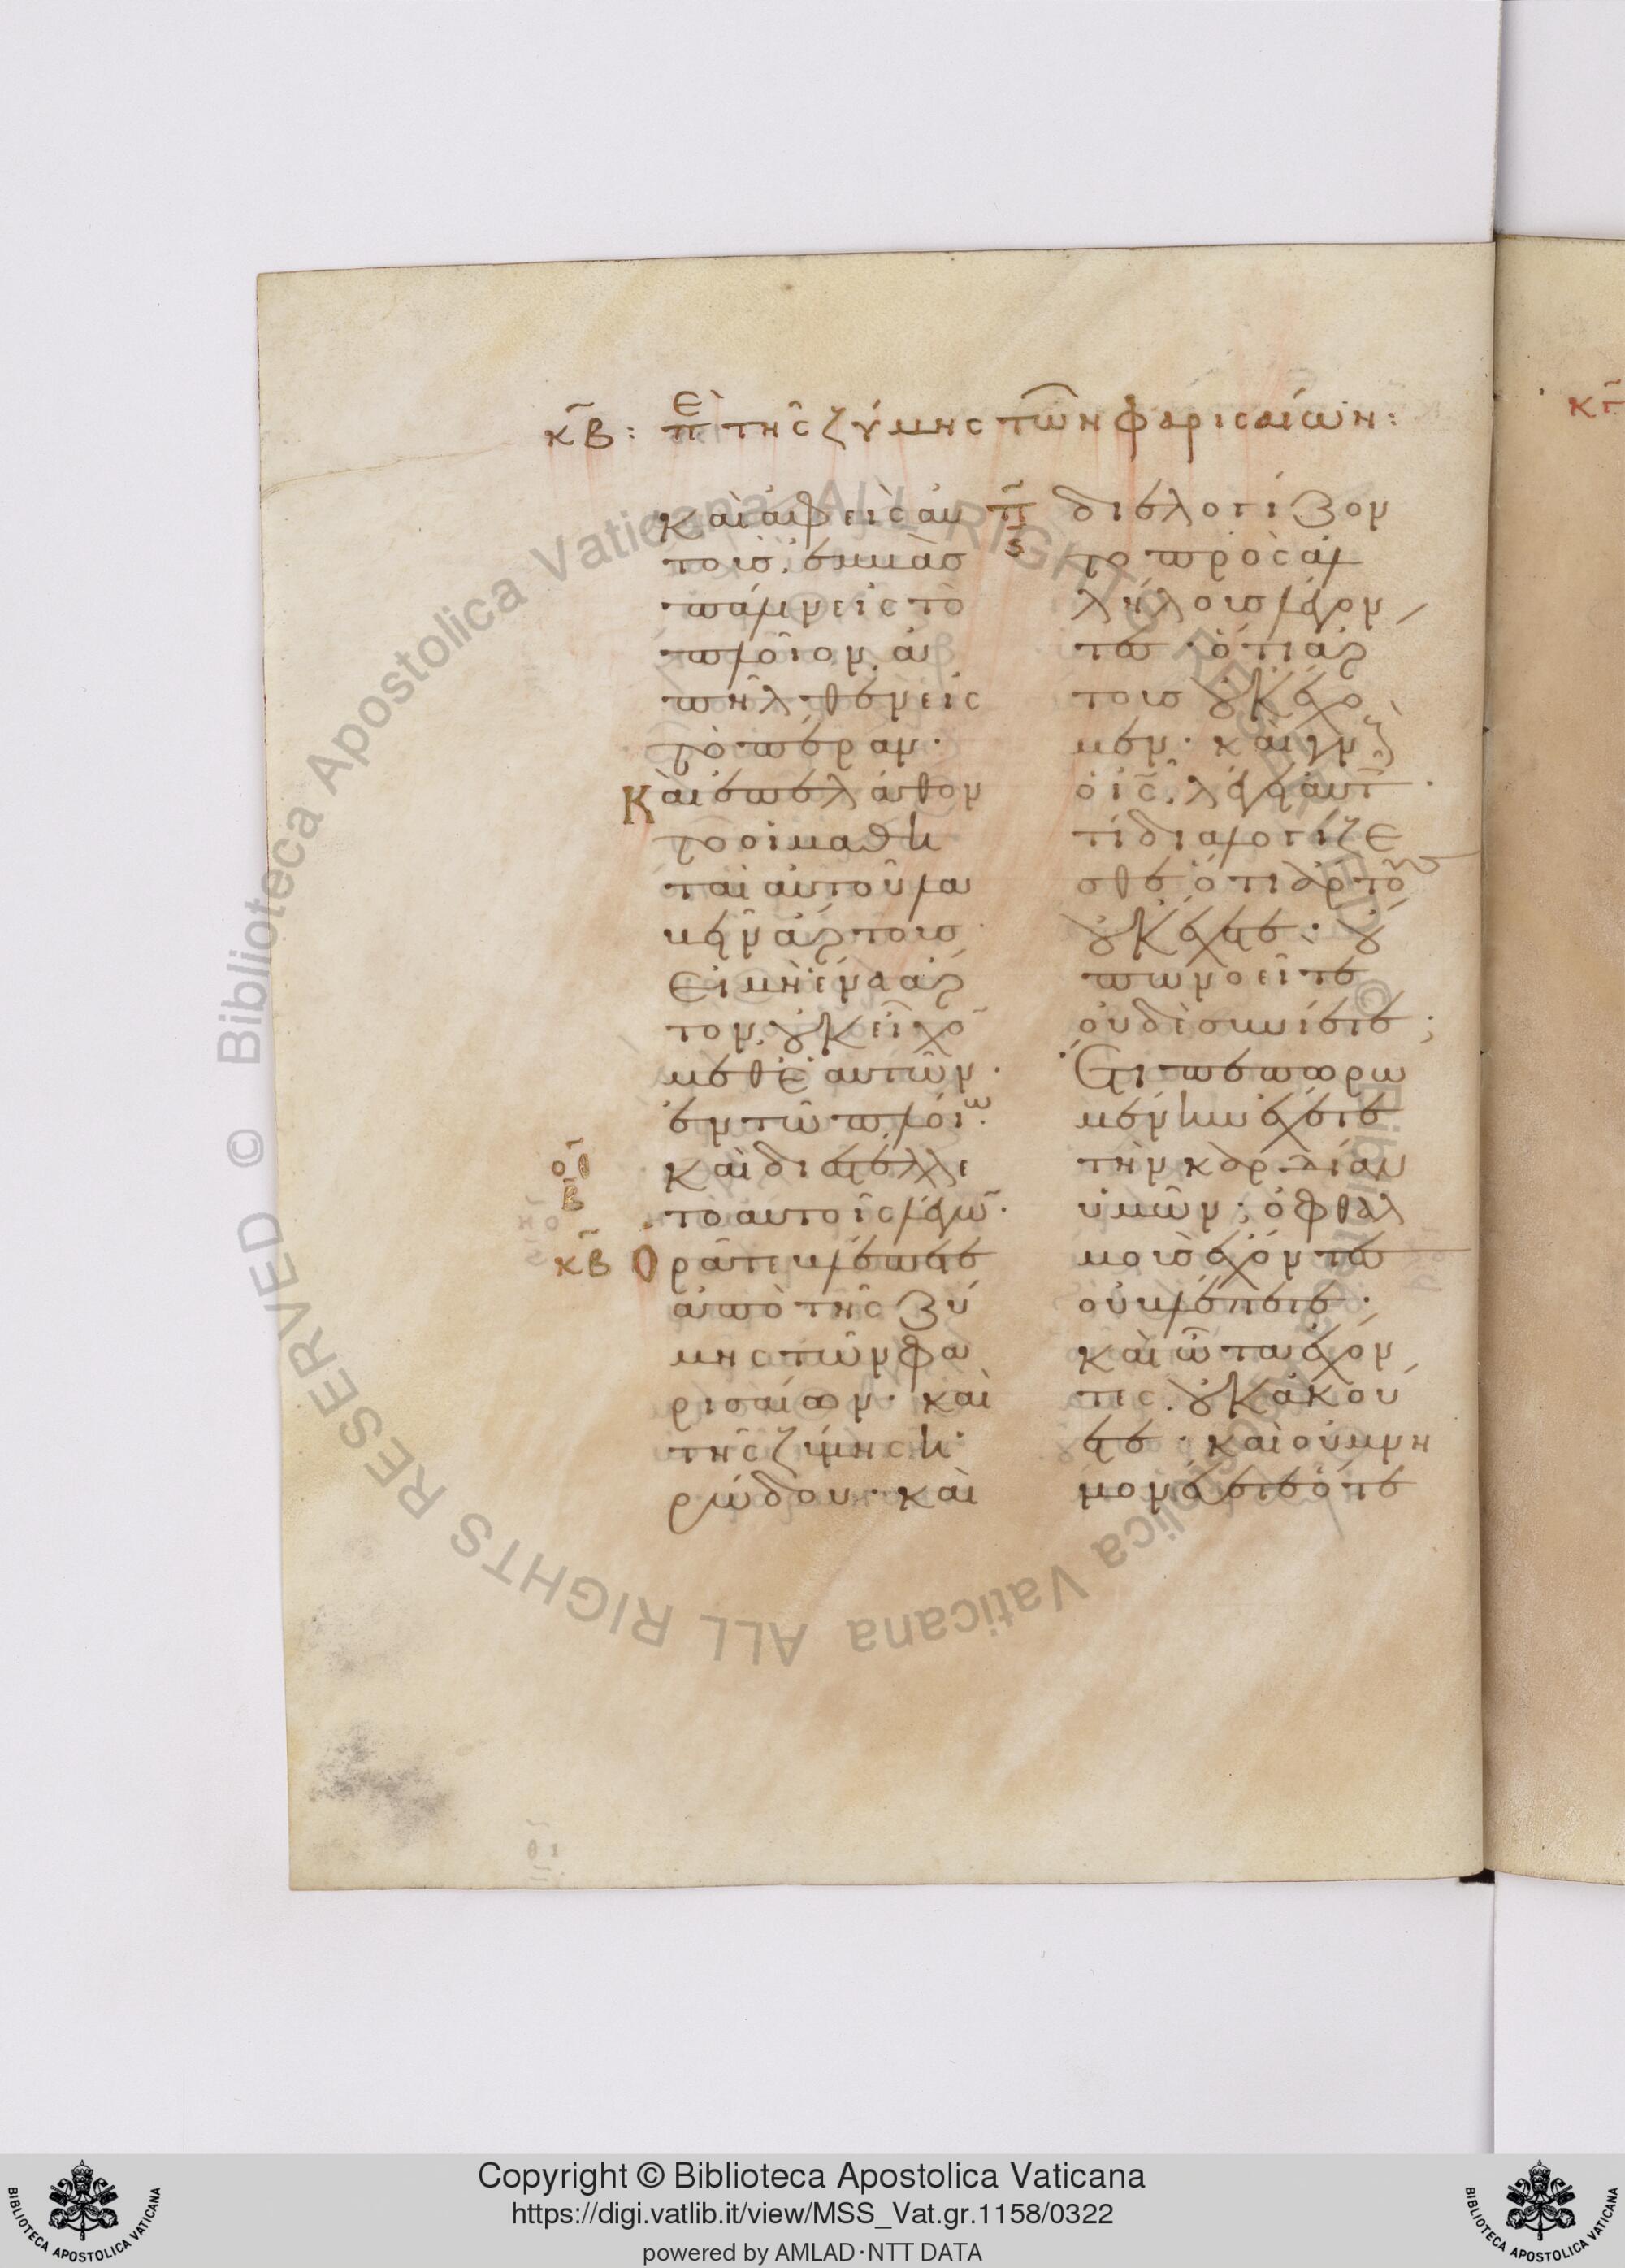 κ̄β: πε τῆς ζύμης τῶν φαρισαίων:
καὶ ἀφεὶς αὐ
τοὺς. ἐμβὰς
πάλιν εἰς τὸ
πλοῖον, ἀ
πῆλθεν εἰς
τὸ πέραν·
Καὶ ἐπελάθον
το οἱ μαθη
ταὶ αὐτοῦ λα
βεῖν ἄρτους
Εἰ μὴ ἕνα ἄρ
τον, οὐκ εἶχο̄
μεθ' ἑαυτῶν·
ἐν τῶ πλοίω·
ο̄θ
β
καὶ διεστέλλε
το αὐτοῖς λέγω̄·
κ̄β
Ὁρᾶτε βλέπετε
ἀπὸ τῆς ζύ
μης τῶν φα
ρισαίων· καὶ
τῆς ζύμης ἡ
ρώδου· καὶ
π̄
ς
διελογίζον
το πρὸς ἀλ
λήλους λέγον
τες· ὅτι ἄρ
τους οὐκ ἔχο
μεν· καὶ γνοὺς
ὁ ι̅ς̅. λέγει αὐτοῖς·
τί διαλογίζε
σθε ὅτι ἄρτους
οὐκ ἔχετε· οὔ
πω νοεῖτε
οὐδὲ συνίετε;
Ἔτι πεπωρω
μένην ἔχετε
τὴν καρδίαν
ὑμῶν; ὀφθαλ
μοὺς ἔχοντες
οὐ βλέπετε·
καὶ ὦτα ἔχον
τες. οὐκ ἀκού
ετε· καὶ οὐ μνη
μονεύετε ὅτε
Copyright © Biblioteca Apostolica Vaticana
https://digi.vatlib.it/view/MSS_Vat.gr.1158/0322
powered by AMLAD·NTT DATA